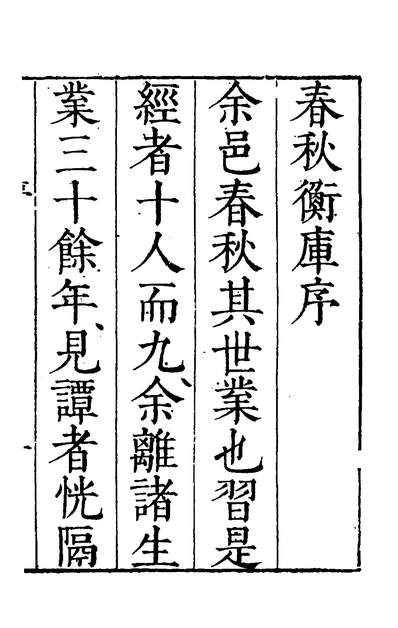 春秋衡庫序
余邑春秋其世業也習是
經者十人而九余離諸生
業三十餘年見譚者恍隔